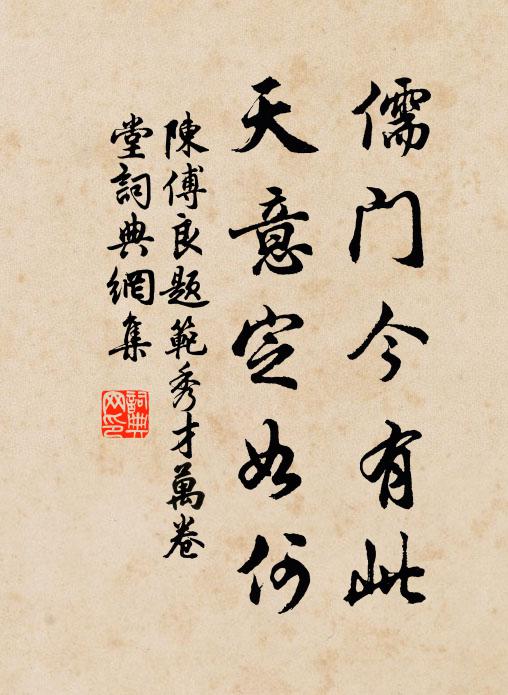 儒门今有此
天意定如何
陳傅良題範秀才萬卷
堂詞典網集
詞典网印